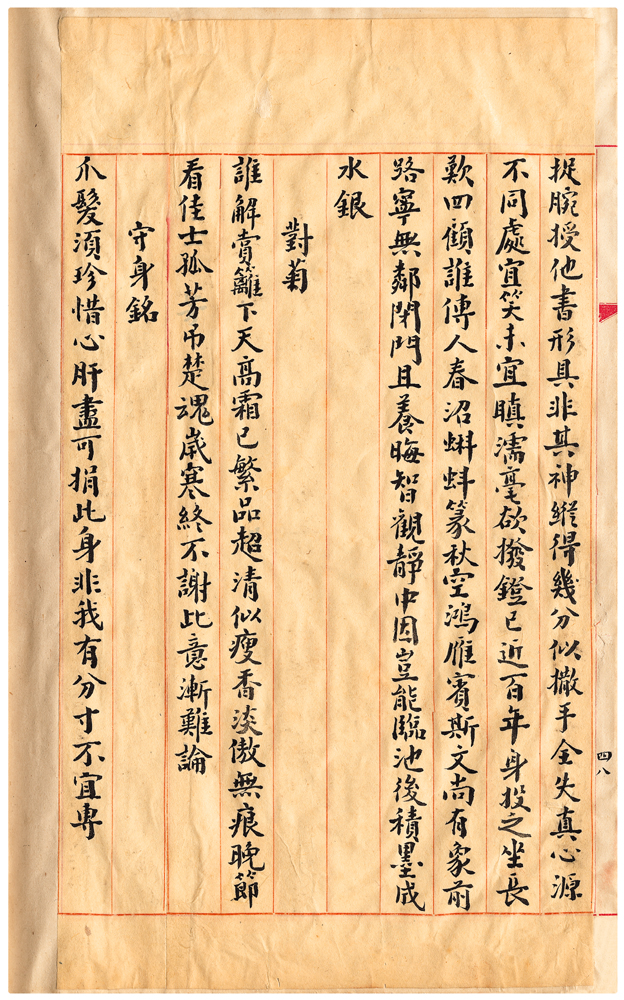 捉腕授他書形具非其神縱得幾分似撒手全失真心源
不同處宜笑未宜瞋濡毫欲撥鐙已近百年身投之坐長
歎四顧誰傳人春沼蝌蚪篆秋空鴻雁賓斯文尚有象前
路寧無鄰閉門且養晦智觀靜中因豈能臨池後積墨成
水銀
對菊
誰解賞籬下天高霜已繁品超清似瘦香淡傲無痕晚節
看佳士孤芳吊楚魂歲寒終不謝此意漸難論
守身銘
爪髮須珍惜心肝盡可捐此身非我有分寸不宜專
四八